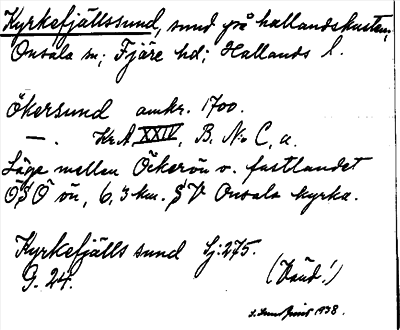 Kyrkefjällssund, sund på hallandskusten;
Onsala sn; Fjäre hd; Hallands l.
Ökersund omkr. 1700.
—. Kr.A XXIV, B. No C, a.
Läge mellan Öckerön o. fastlandet
ön, 6,3 km. SV Onsala kyrka.
Kyrkefjälls sund Sj:275.
G. 24. (Känd!)
1938.